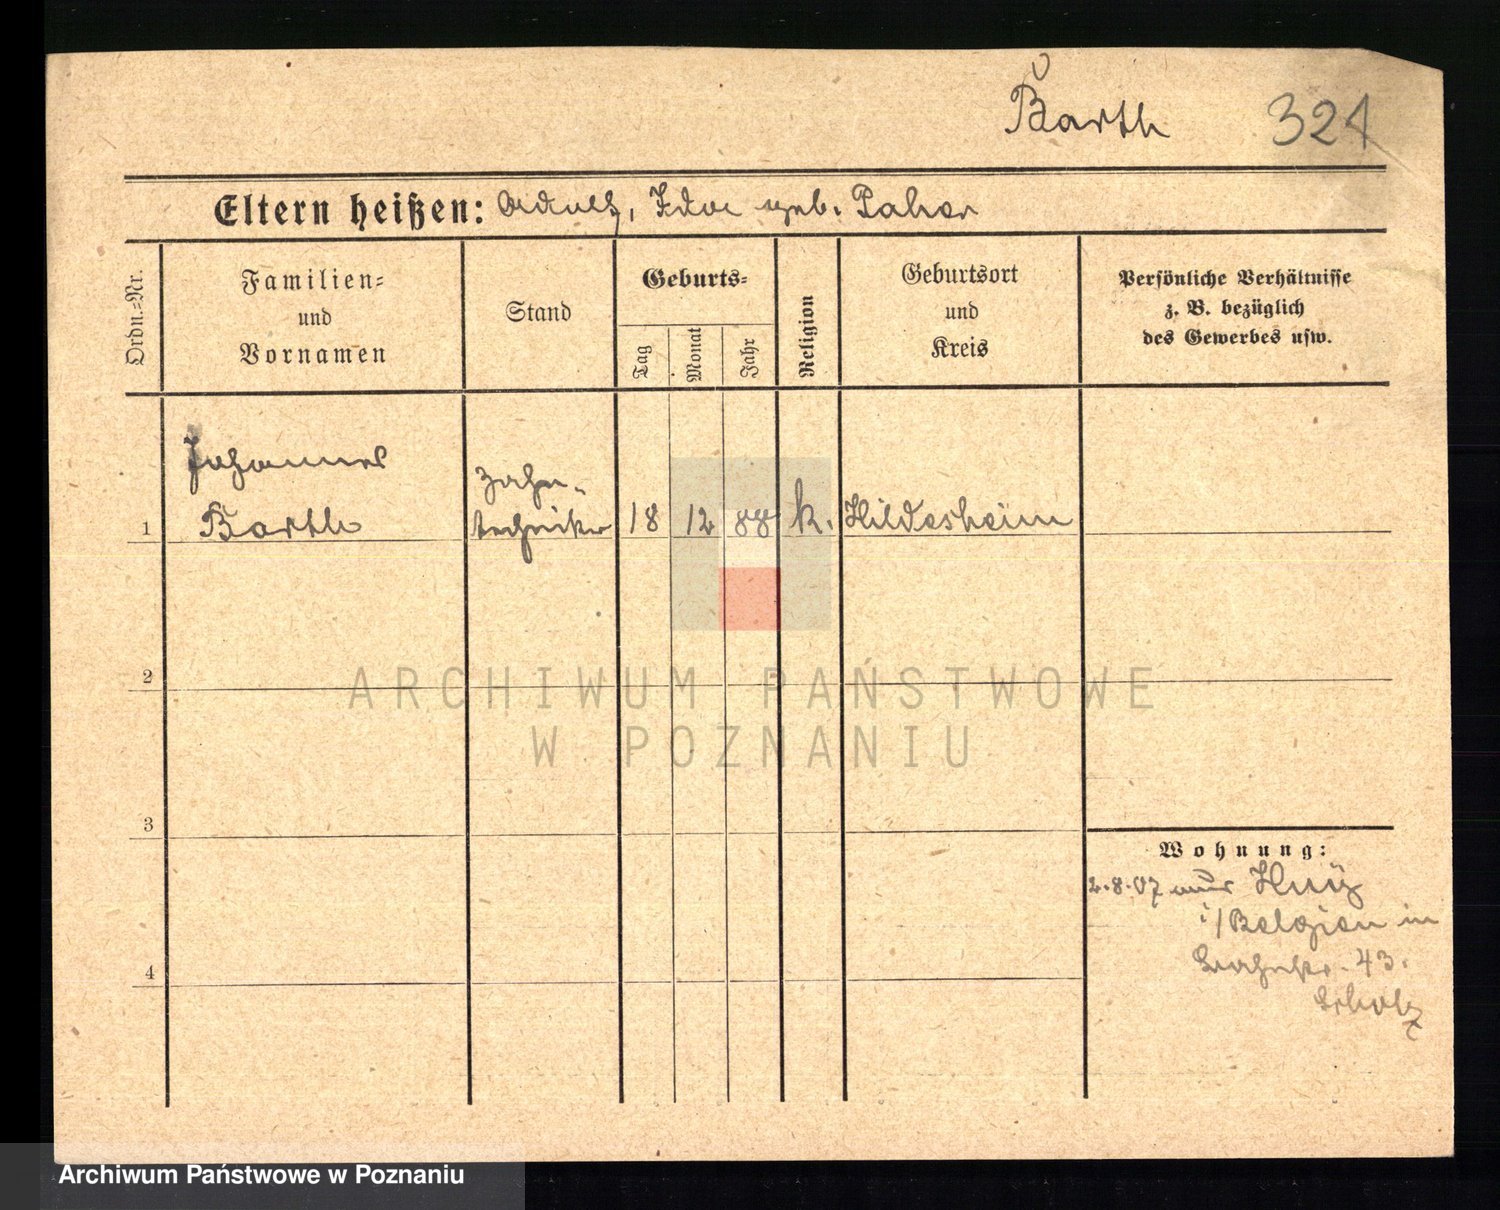 Barth 324
Eltern heißen: Adolf, Ida geb.
Ordn.-Nr.
Familien-
und
Vornamen
Stand
Geburts-
Tag
Monat
Jahr
Religion
Geburtsort
und
Kreis
Persönliche Verhältnisse
z. B. bezüglich
des Gewerbes usw.
Johannes
Zahn-
1 Barth techniker 18 12 88 k. Hildesheim
2
ARCHIWUM PAŃSTWOWE
W POZNANIU
3
Wohnung:
2.8.07 Huÿ
i/Belgien in
43.
4
Scholz
Archiwum Państwowe w Poznaniu